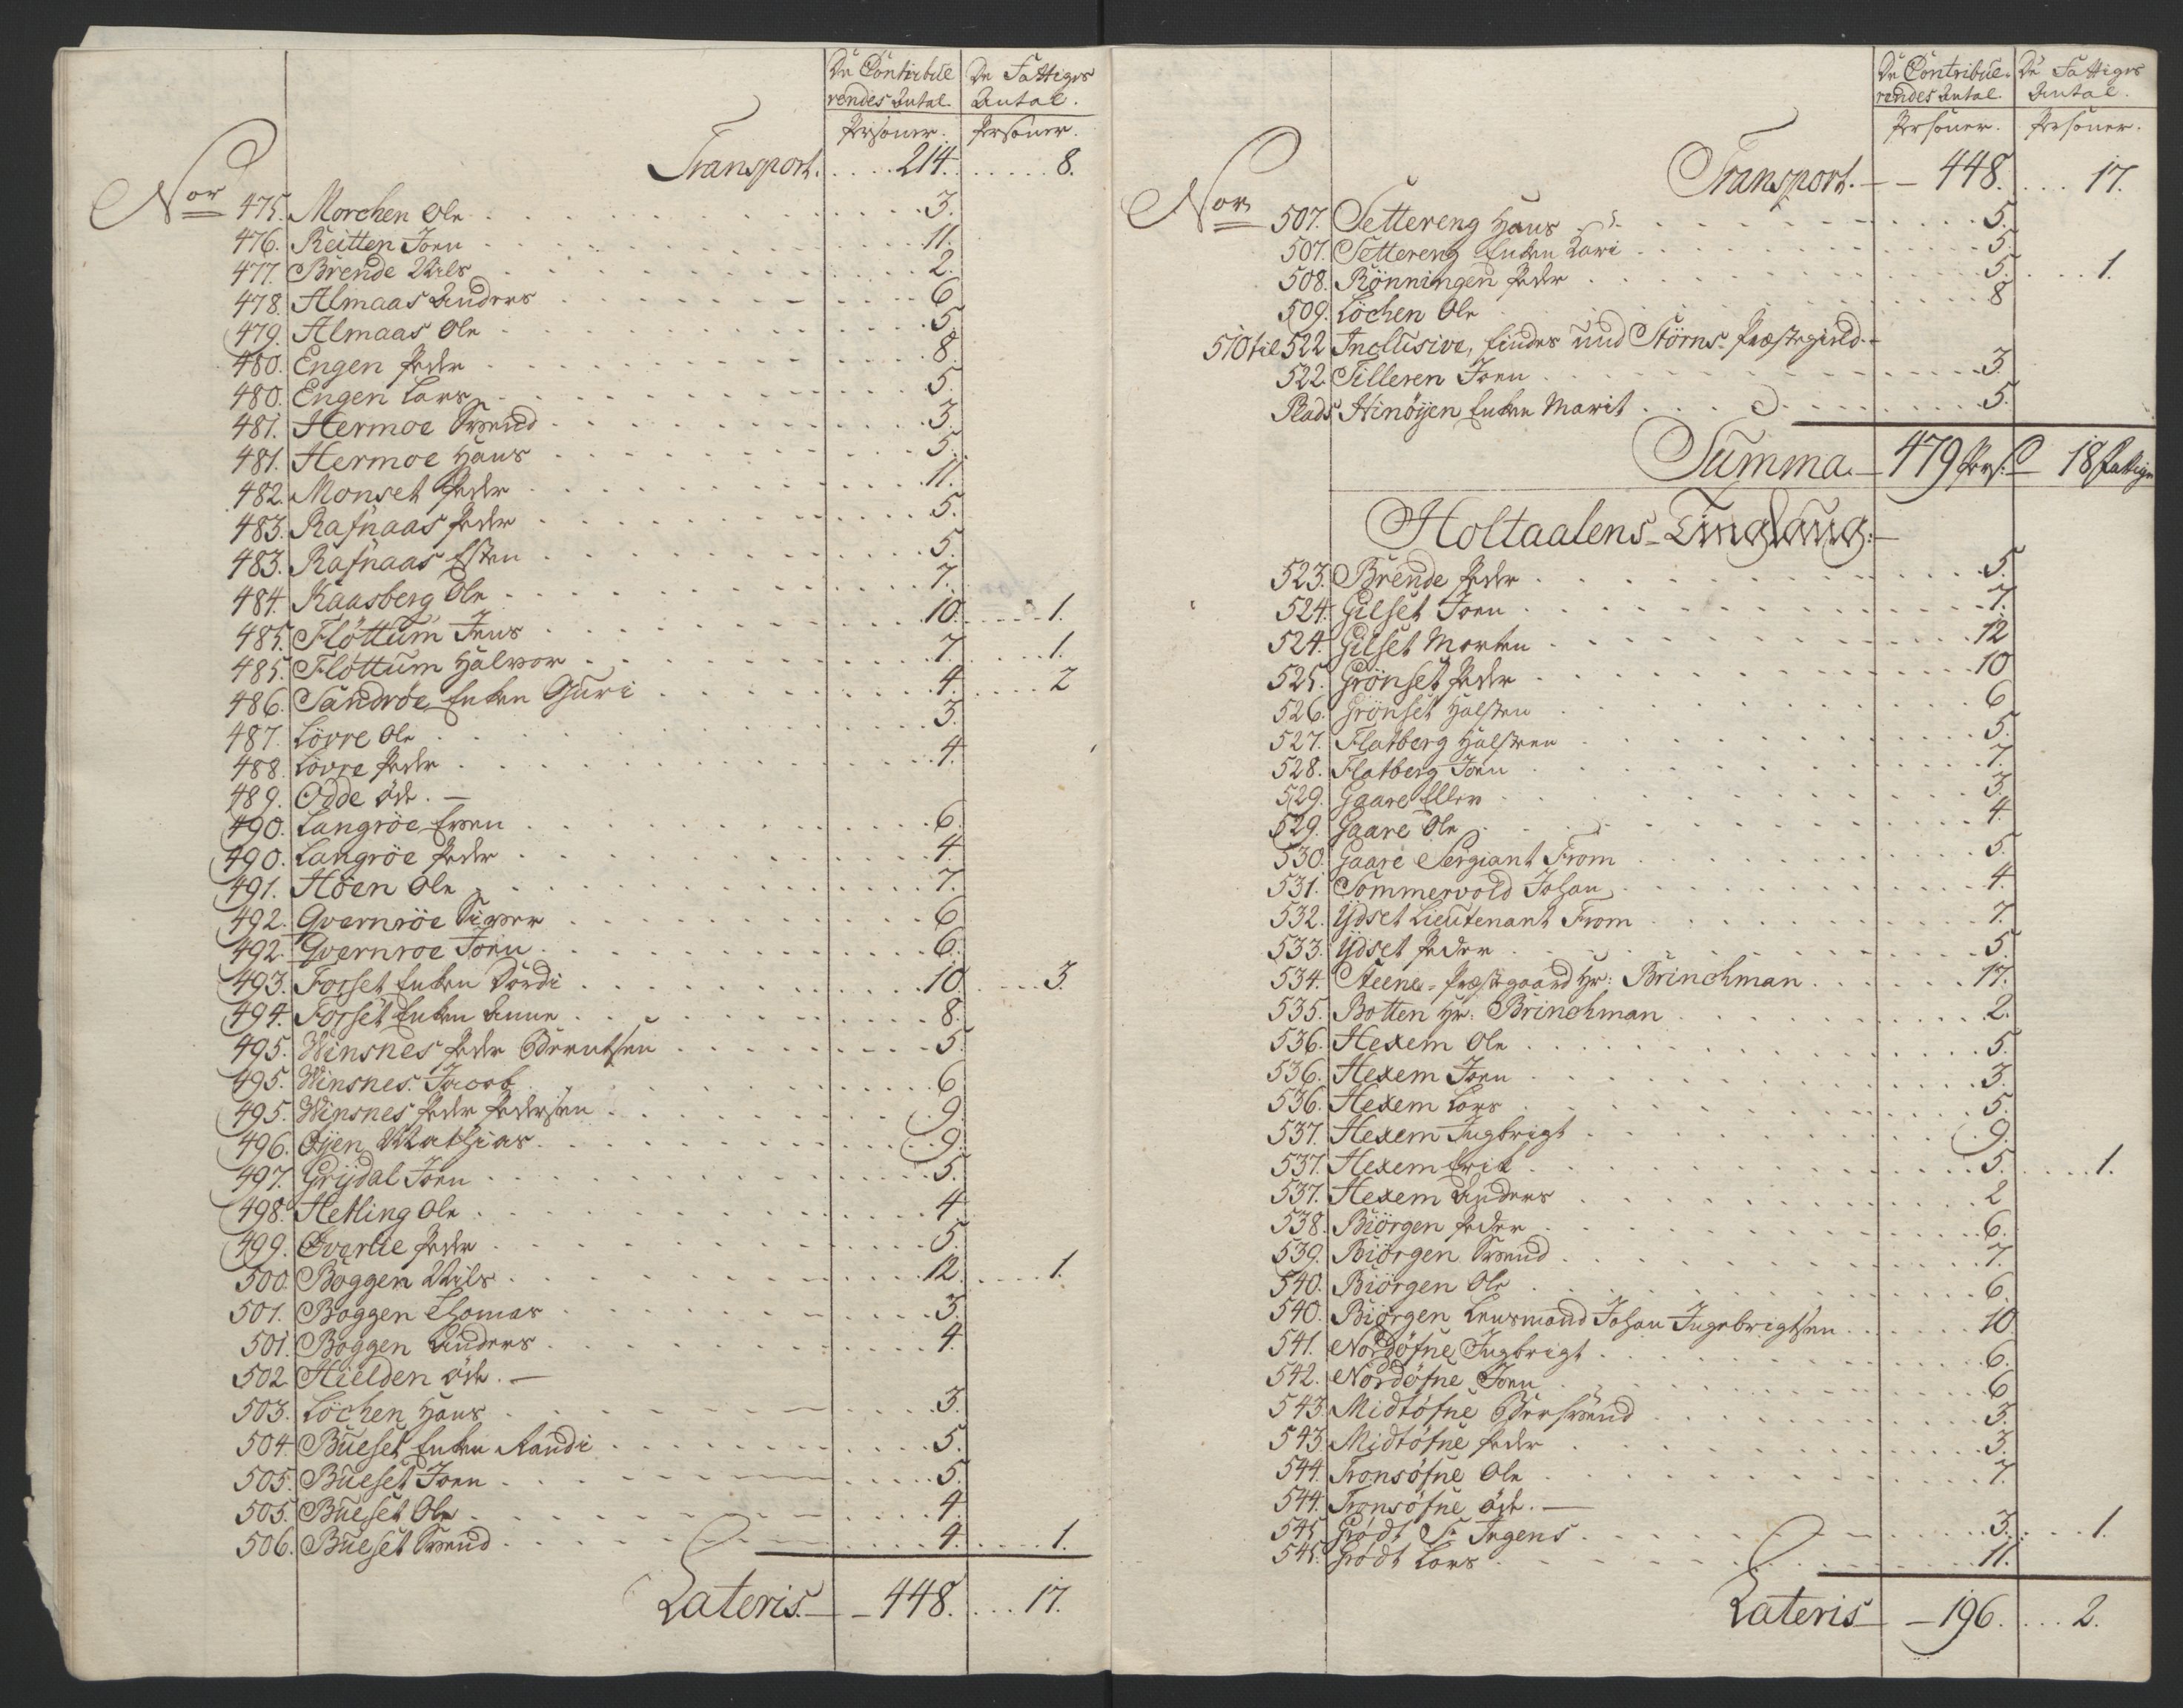 De Contribue De Fattiges
rendes Antal. Antal.
Persöner. Persöner.
Transport. 214. 8.
Nor 475. Morchen Ole 3.
476. Reitten Joen 11.
477. Brende Nils 2.
478. Almaas Anders 6
479. Almaas Ole 5.
480. Engen Peder 8.
480. Engen Lars 5.
481. Hermoe Svend 3.
481. Hermoe Hans 5.
482. Monset Peder 11.
483. Rafnaas Peder 5.
483. Rafnaas Esten 5.
484. Kaasberg Ole 7.
485. Flöttum Jens 10. 1.
485. Flöttum Halvor 7. 1.
486. Sandröe Enken Guri 4. 2
487. Lövre Ole 3.
488. Lövre Peder 4.
489. Odde öde. —
490. Langröe Even 6.
490. Langröe Peder 4.
491. Höen Ole 7.
492. Qvernröe Siver 6
492. Qvernroe Joen 6.
493. Forset Enken Dordi 10. 3.
494. Forset Enken Anne 8.
495. Winsnes Peder Berntsen 5.
495. Winsnes Jacob 6
495. Winsnes Peder Pedersen 9.
496. Öyen Mathias 9.
497. Grydal Joen 5.
498. Hetling Ole 4.
499. Svarlie Peder 5.
500. Boggen Nils 12. 1.
501. Boggen Thomas 3.
501. Boggen Anders 4.
502. Hielden öde. —
503. Löchen Hans 3.
504. Bueset Enken Randi 5.
505. Bueset Joen 5.
505. Bueset Ole 4.
506. Bueset Svend 4. 1.
Lateris. 448. 17.
De Contribue- De Fattiges
rendes Antal. Antal.
Persöner. Persöner.
Transport. 448. 17.
Nor 507. Settereng Hans 5.
507. Settereng Enken Kari 5.
508. Rönningen Peder 5. 1.
509. Löchen Ole 8
510 til 522 Inclusive, findes und Störns Præstegield.
522. Tilleren Joen 3.
Plads Hinöyen Enken Marit 5.
Summa. 479 Pers: 18 Fattige
Holtaalens Tinglaug:
523. Brende Peder 5.
524. Gilset Joen 7.
524. Gilset Morten 12
525. Grönset Peder 10
526. Grönset Halsten 6
527. Flatberg Halsteen 5.
528. Flatberg Joen 7.
529. Gaare Ellev 3.
529. Gaare Ole 4
530. Gaare Sergiant From 5.
531. Sommervold Johan 4.
532. Ydset Lieutenant From 7.
533. Ydset Peder 5.
534. Aeene Præstegaard Hr: Brinchman 17.
535. Botten Hr: Brinchman 2.
536. Hexem Ole 5.
536. Hexem Joen 3.
536. Hexem Lars 5.
537. Hexem Ingbrigt 9.
537. Hexem Erik 5. 1.
537. Hexem Anders 2
538. Biörgen Peder 6.
539. Biörgen Svend 7.
540. Biörgen Ole 6.
540. Biörgen Lensmand Johan Ingebrigtsen 10.
541. Nordöfne Ingbrigt 6.
542. Nordöfne Joen 6
543. Midtöfne Bersvend 3.
543. Midtöfne Peder 3.
544. Tronsöfne Ole 7.
544. Tronsöfne öde. —
545. Grödt Sr Irgens 3. 1.
545. Grödt Lars 11.
Lateris 196. 2.